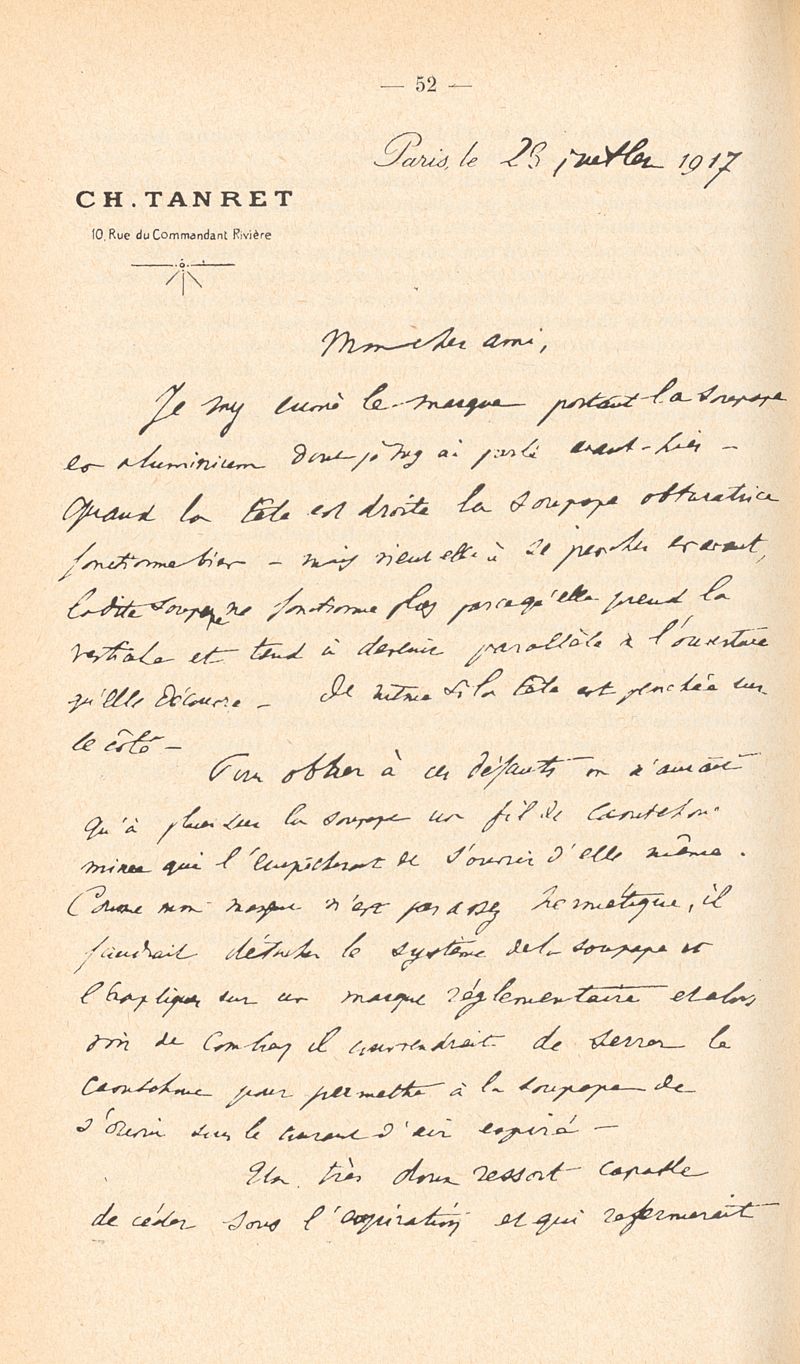 — 52 —
Paris, le 23 juillet 1917
CH. TANRET
10, Rue du Commandant Rivière
Mon cher ami,
Je t'ai envoyé le masque portant la soupape
en aluminium dont je t'ai parlé avant-hier —
Quand la tête est droite la soupape obturatrice
fonctionne bien — mais vient elle à se pencher en avant,
ladite soupape ne fonctionne plus parce qu'elle prend la
verticale et tend à devenir parallèle à l'ouverture
qu'elle découvre — De même si la tête est penchée sur
le côté —
Pour obvier à ces défauts on n'aurait
qu'à placer sur la soupape un fil de caoutchouc
mince qui l'empêcherait de s'ouvrir d'elle même.
Comme mon masque n'est pas assez hermétique, il
faudrait détacher le système de la soupape et
l'appliquer sur un masque réglementaire et alors
voir de combien il conviendrait de serrer le
caoutchouc pour permettre à la soupape de
s'ouvrir sous le courant d'air expiré —
Un très doux ressort capable
de céder sous l'expiration et qui refermerait